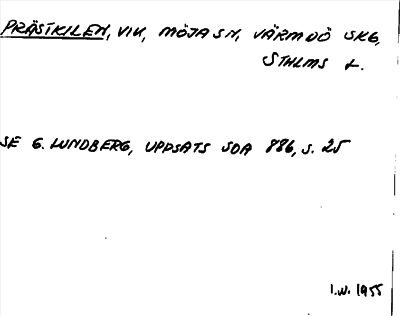 PRÄSTKILEN, VIK, MÖJA SN, VÄRMDÖ SKG,
STHLMS L.
SE G. LUNDBERG, UPPSATS SOA 886, S. 25
I.W. 1955